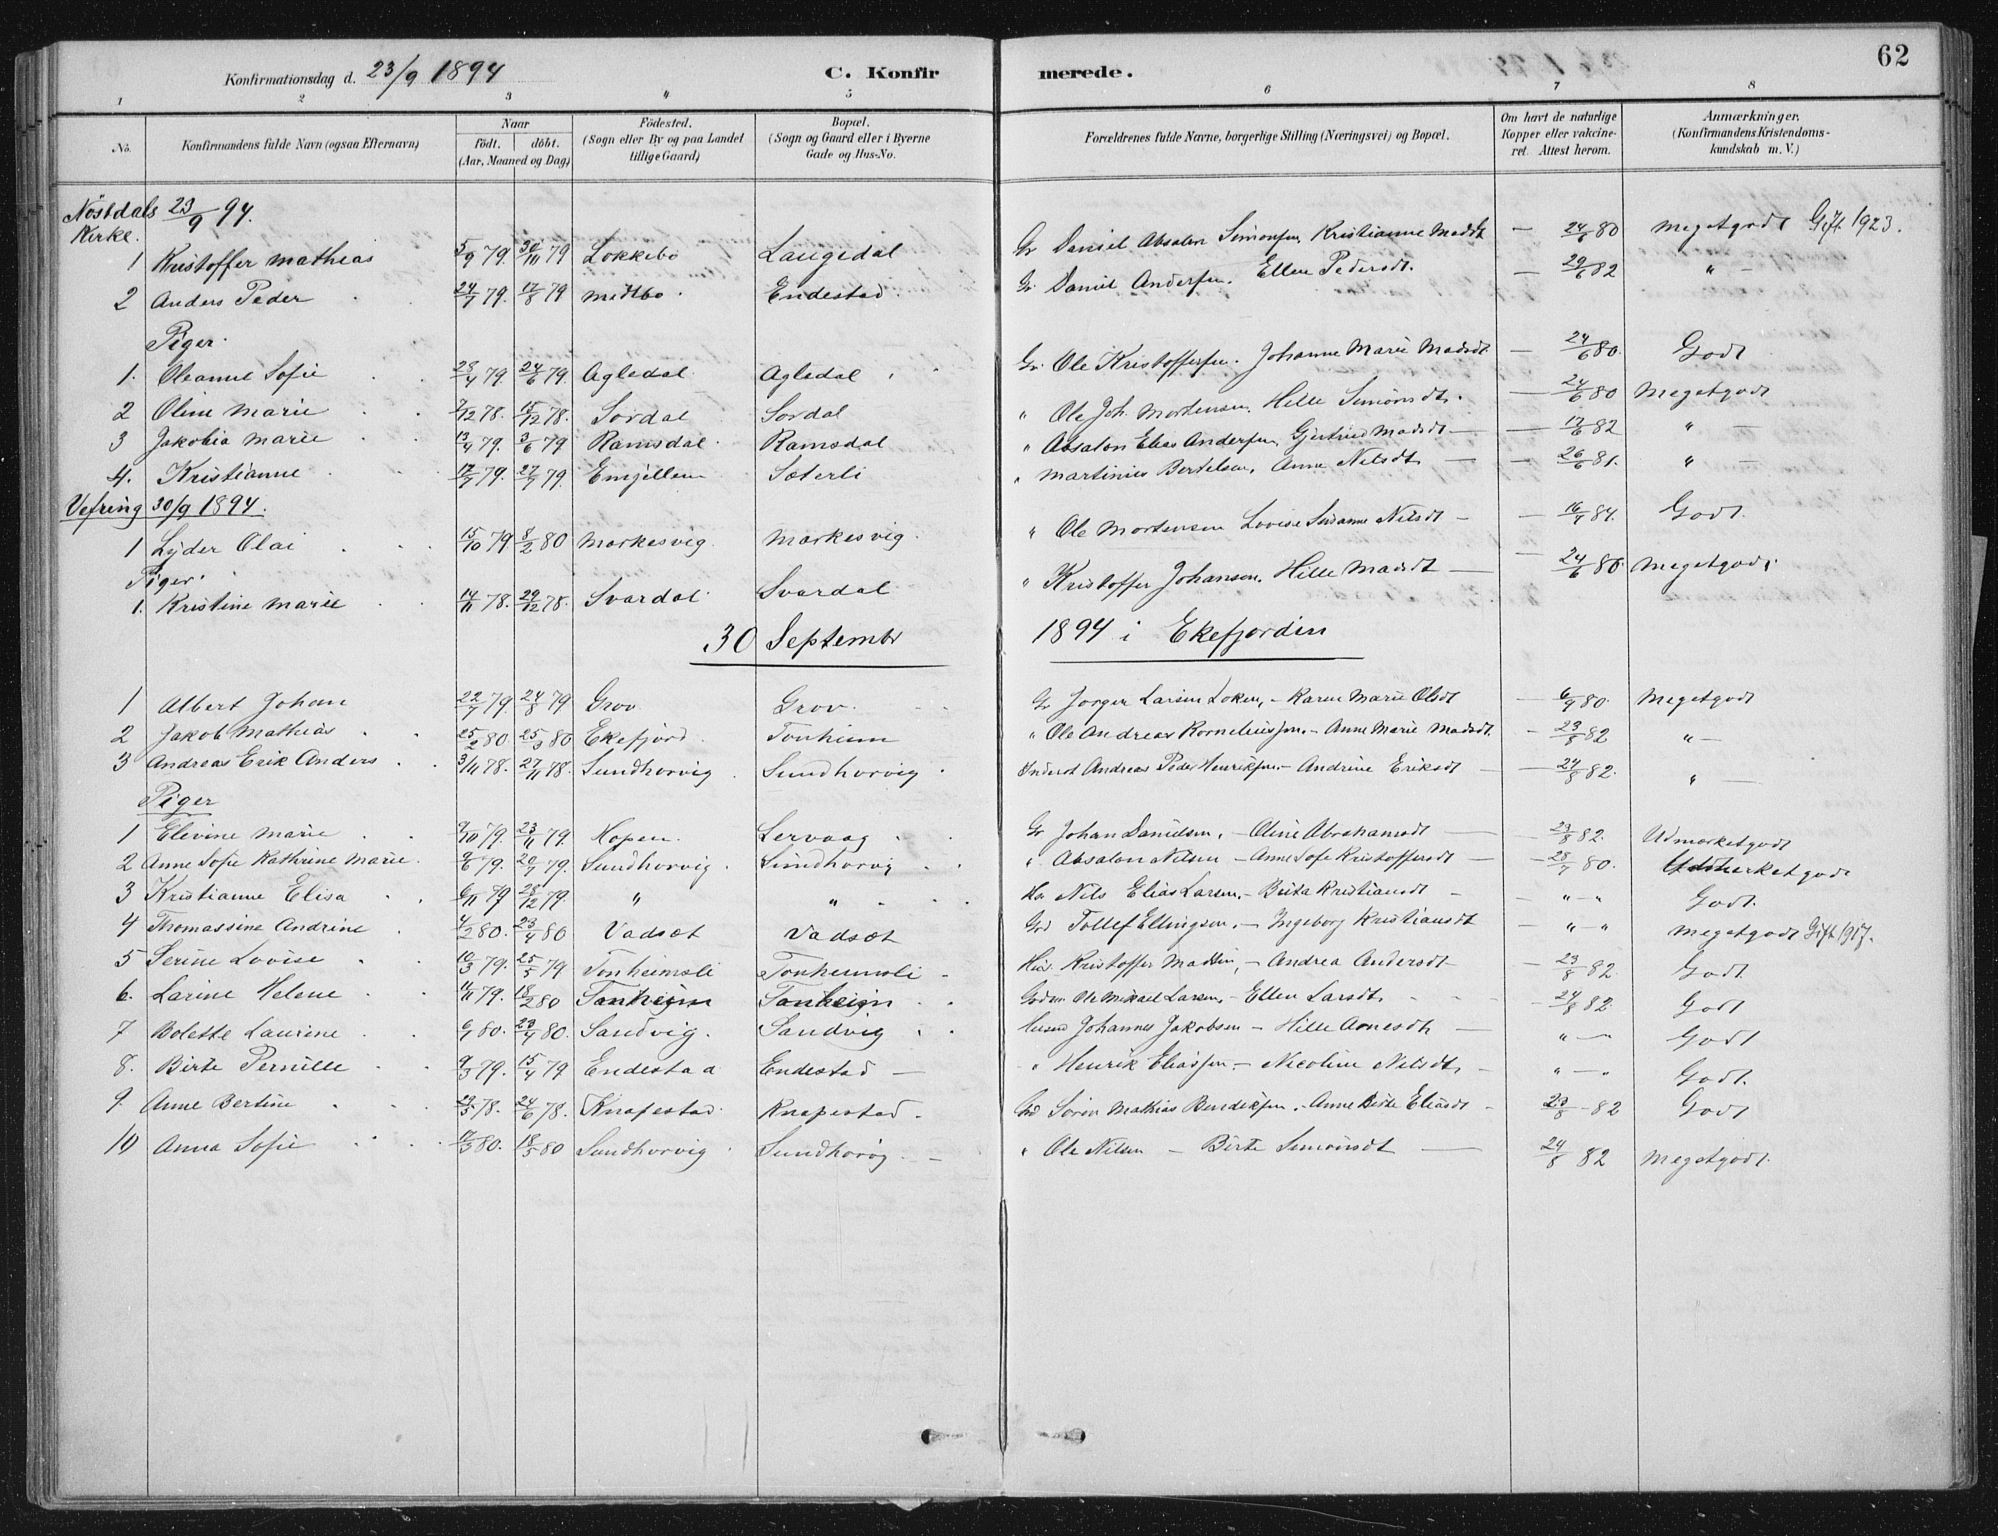 62
Konfirmationsdag d. 23/9 1894 C. Konfirmerede.
1 2 3 " 5 6 7 8
No. Konfirmandens fulde Navn (ogsaa Efternavn) Naar födt. döbt. (Aar, Maaned og Dag) Födested. (Sogn eller By og paa Landet tillige Gaard) Bopæl. (Sogn og Gaard eller i Byerne Gade og Hus-No. Forældrenes fulde Navne, borgerlige Stilling (Næringsvei) og Bopæl. Om havt de naturlige Kopper eller vakcineret. Attest herom. Anmærkninger. (Konfirmandens Kristendomskundskab m. V.)
Nöstdals Kirke. 23/9 94.
1 Kristoffer Mathias 5/9 79. 79 Lokkebo Langedal Gr Daniel Absalon Simonsen, Kristianne Madsdt — 24/6 80 Megetgodt Gift 1923.
2 Anders Peder 24/7 79. 17/8 79 Midtbø. Endestad. Gr. Daniel Andersen. Ellen Pedersdt. — 29/6 82 " —
Piger.
1. Oleanne Sofie 28/4 79. 24/6 79. Agledal Agledal Gr. Ole Kristoffersen. Johanne Marie Madsdt — 24/6 80. Godt
2 Oline Marie 7/12 78. 15/12 78. Sordal Sordal " Ole Joh. Mortensen, Hille Simonsdt. — 24/6 80 Megetgodt
3 Jakobia Marie 13/4 79. 3/6 79 Ramsdal Ramsdal " Absalon Elias Andersen, Gjertrud Madsdt — 17/6 82 " —
4. Kristianne 17/7 79. 27/7 79. Emgjellen Sæterli " Martinius Bertelsen, Anne Nilsdt — 26/6 81. " —
Vefring 30/9 1894.
1 Lyder Olai 15/10 79 8/2 80 Markesvig. Markesvig. " Ole Mortensen Lovise Susanne Nilsdt — 16/7 84. Godt.
Piger.
1. Kristine Marie 14/11 78. 29/12 78. Svardal Svardal " Kristoffer Johansen, Hille Madsdt — 24/6 80 Megetgodt
30 Septembr 1894 i Ekefjorden
1 Albert Johan 22/7 79. 24/8 79 Grov Grov. Gr Jorger Larsen Loken, – Karen Marie Olsdt — 6/9 80. Megetgodt
2 Jakob Mathias 25/2 80 25/3 80 Ekefjord Tonheim " Ole Andreas Korneliussen. – Anne Marie Madsdt. — 23/8 82 " —
3 Andreas Erik Anders 3/11 78. 27/11 78. Sundhorvig Sundhorvig Inderst Andreas Peder Henriksen – Andrine Eriksdt — 24/8 82. " —
Piger
1 Elevine Marie 9/10 79. 23/11 79. Hopen. Lervaag Gr Johan Danielsen. – Oline Abrahamsdt — 23/8 82. Udmærketgodt
2 Anne Sofie Kathrine Marie 9/6 79. 20/7 79. Sundhorvig Sundhorvig " Absalon Nilsen – Anne Sofie Kristoffersdt — 28/7 80. Udmærketgodt
3 Kristianne Elisa 6/11 79 28/12 79. " " Nils Elias Larsen. – Brita Kristiansdt — " – " Godt.
4 Thomassine Andrine 4/2 80. 23/4 80 Vadset Vadset Tollef Ellingsen. – Ingeborg Kristiansdt — " – " Megetgodt Gift 1917.
5 Serine Lovise 10/3 79. 25/5 79 Tonheimsli Tonheimsli Kristoffer Madsen, – Andrea Andersdt — 23/8 82. Godt
6. Larine Helene 11/11 79. 18/2 80 Tonheim Tonheim Ole Mikael Larsen. – Ellen Larsdt. 24/8 82. Godt
7 Bolette Laurine 6/4 80. 23/4 80. Sandvig. Sandvig Johannes Jakobsen – Hille Arnesdt. — " — Godt
8. Birte Pernille 9/3 79. 15/4 79 Endestad Endestad — " Henrik Eliassen – Nicoline Nilsdt. — " — Godt.
9. Anne Bertine 23/5 78. 24/6 78. Knapestad Knapestad. Sören Mathias Bendiksen. Anne Birte Eliasdt — 23/8 – 82 Godt
10 Anna Sofie 17/3 80. 18/5 80 Sundhorvig Sundhorvig. — " Ole Nilsen – Birte Simonsdt — 24/8 82 Megetgodt.